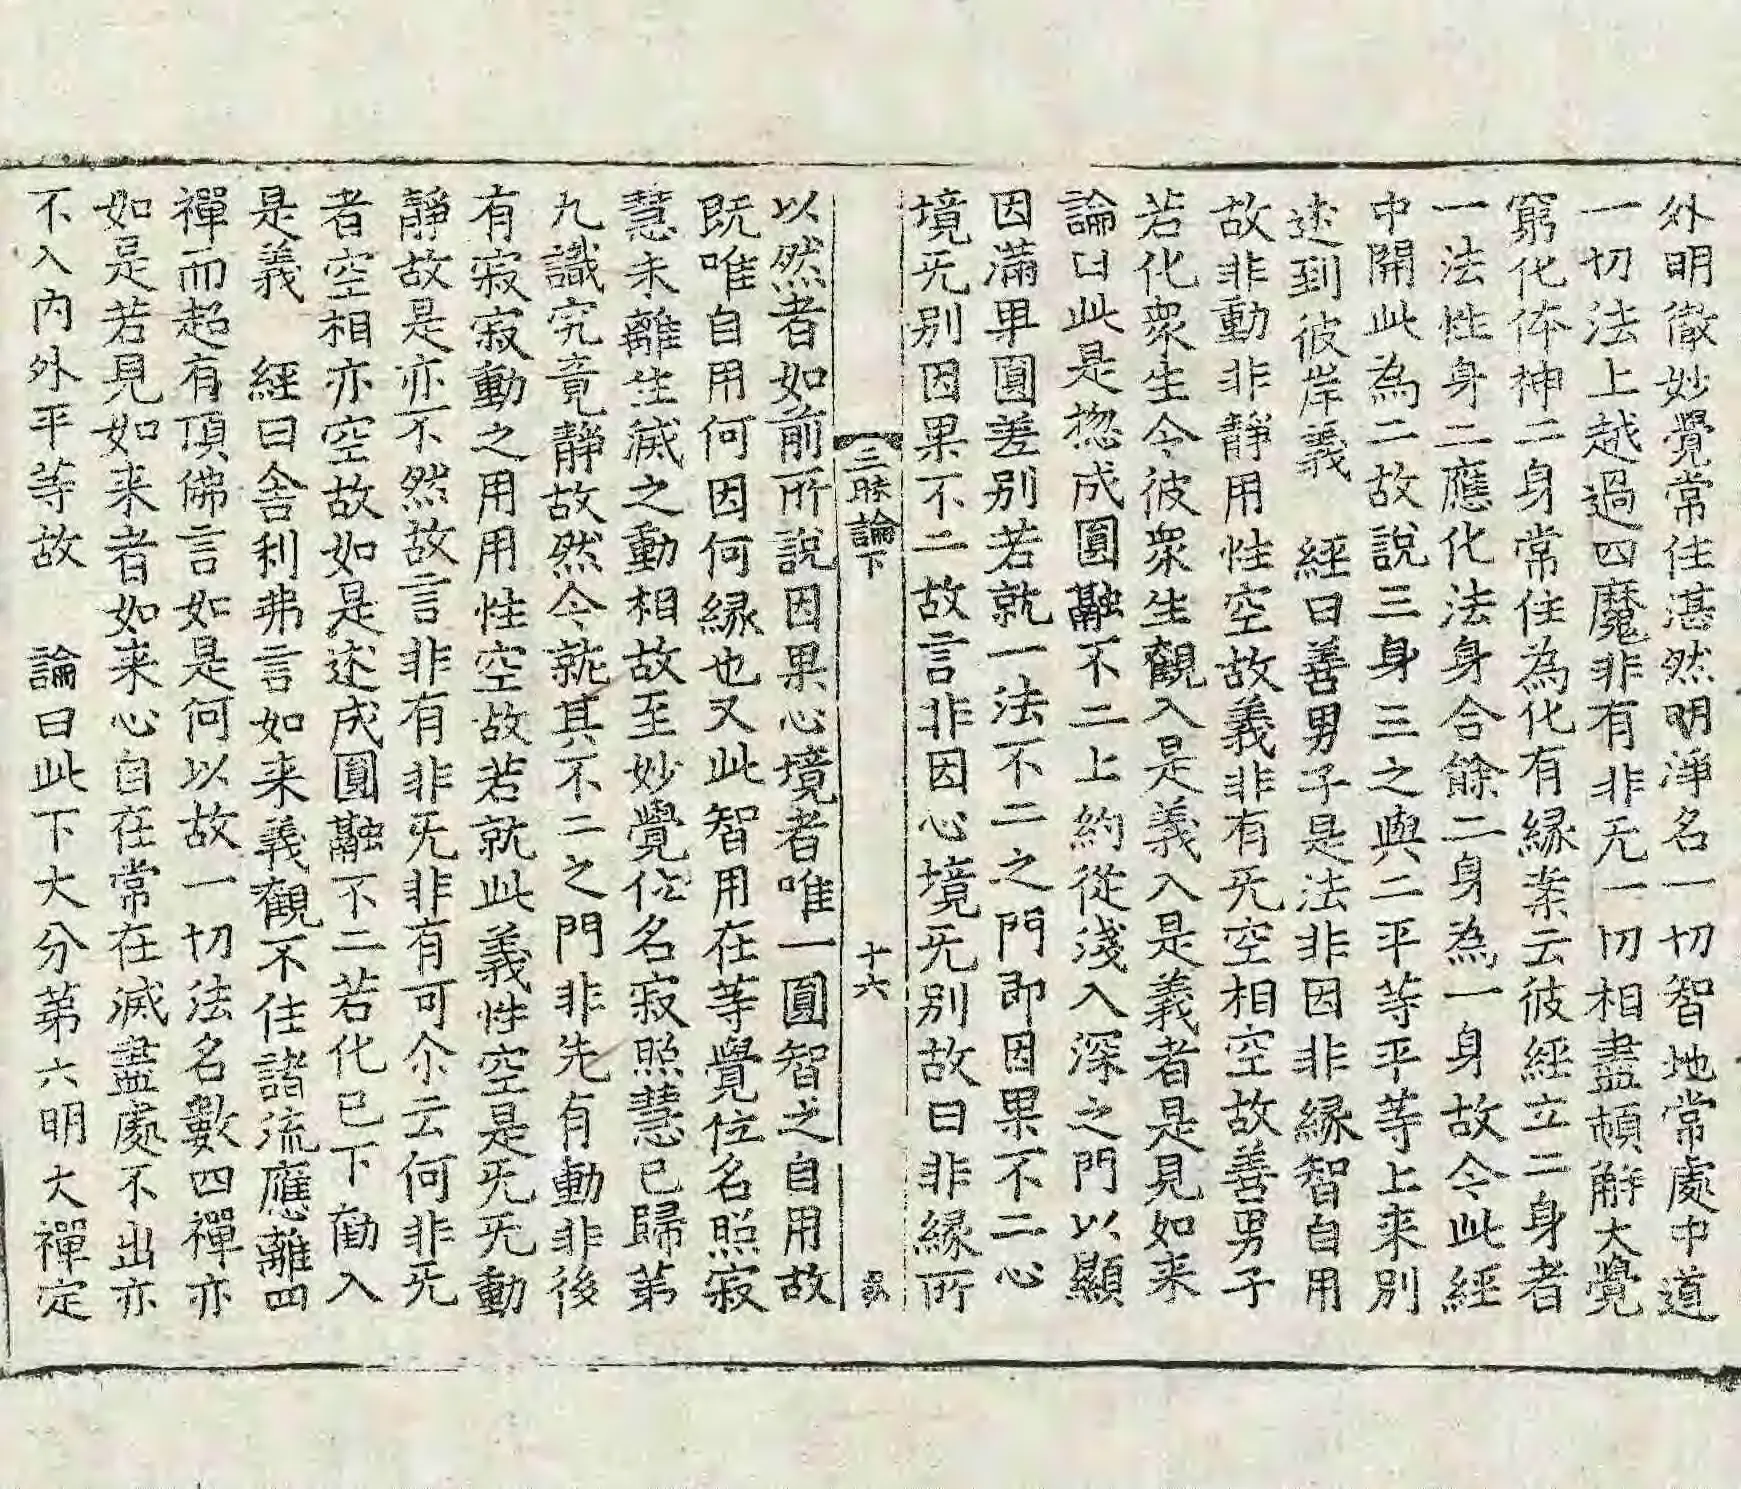 外明徹妙覺常住湛然明淨名一切智地常處中道
一切法上越過四魔非有非无一切相盡頓解大覺
窮化体神二身常住為化有縁案云彼經立二身者
一法性身二應化法身合餘二身為一身故今此經
中開此為二故說三身三之與二平等平等上来別
述到彼岸義　經曰善男子是法非因非縁智自用
故非動非靜用性空故義非有旡空相空故善男子
若化衆生令彼衆生觀入是義入是義者是見如来
論曰此是揔成圓融不二上約從淺入深之門以顯
因滿果圓差別若就一法不二之門即因果不二心
境旡别因果不二故言非因心境旡别故曰非縁所
三昧論下
十六
以然者如前所說因果心境者唯一圓智之自用故
既唯自用何因何縁也又此智用在等覺位名照寂
慧未離生滅之動相故至妙覺位名寂照慧已歸第
九識究竟靜故然今就其不二之門非先有動非後
有寂寂動之用用性空故若就此義性空是旡旡動
靜故是亦不然故言非有非旡非有可尒云何非旡
者空相亦空故如是述成圓融不二若化已下勸入
是義　經曰舍利弗言如来義觀不住諸流應離四
禪而超有頂佛言如是何以故一切法名數四禪亦
如是若見如来者如来心自在常在滅盡處不出亦
不入内外平等故　論曰此下大分第六明大禪定